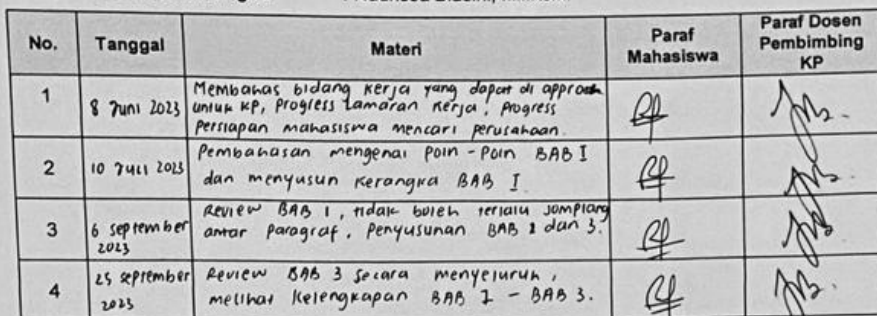 No. Tanggal Materi Paraf Mahasiswa Paraf Dosen Pembimbing KP
1 8 Juni 2023 Membahas bidang kerja yang dapat di approach
untuk KP, Progress Lamaran Kerja, Progress
Persiapan mahasiswa mencari perusahaan.
2 10 Juli 2023 Pembahasan mengenai Poin - Poin BAB I
dan menyusun kerangka BAB I
3 6 september 2023 Review BAB 1, tidak boleh terlalu jomplang
antar Paragraf, Penyusunan BAB 2 dan 3.
4 25 september 2023 Review BAB 3 secara menyeluruh,
melihat kelengkapan BAB I - BAB 3.